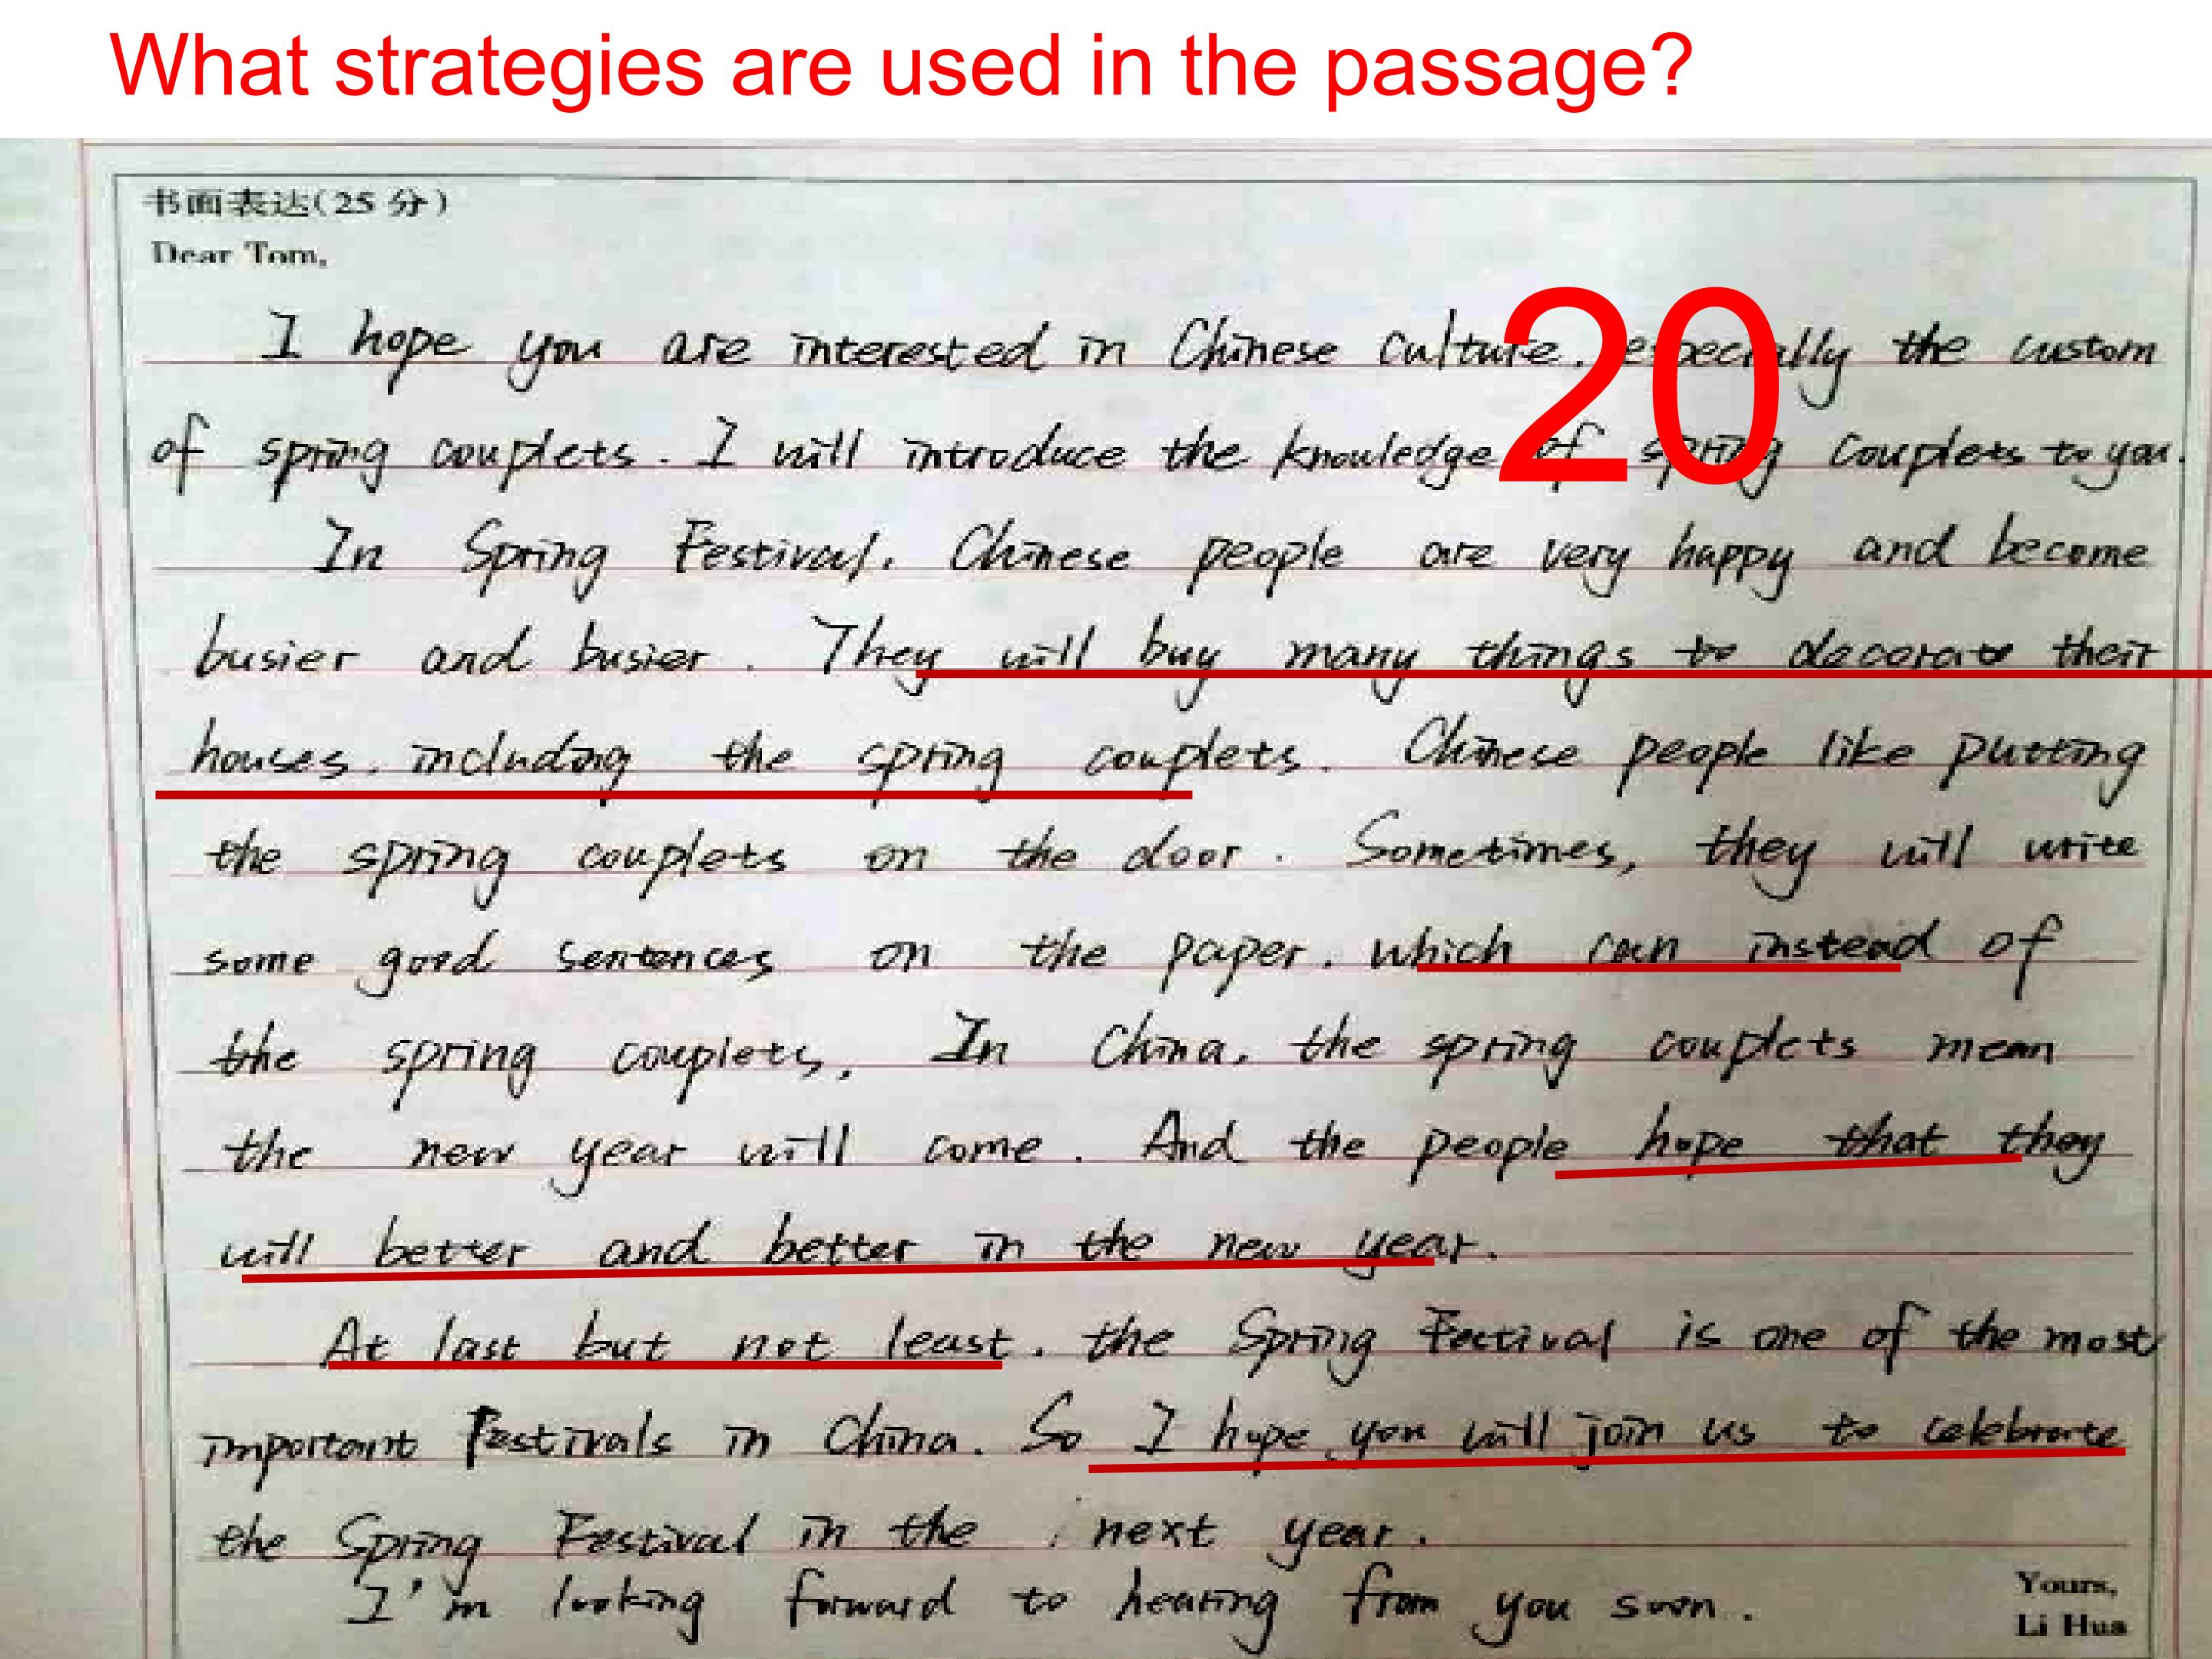 What strategies are used in the passage?
书面表达(25 分)
Dear Tom,
20
I hope you are interested in Chinese culture, especially the custom
of spring couplets. I will introduce the knowledge of spring couplets to you.
In Spring Festival, Chinese people are very happy and become
busier and busier. They will buy many things to decorate their
houses, including the spring couplets. Chinese people like putting
the spring couplets on the door. Sometimes, they will write
some good sentences on the paper, which can instead of
the spring couplets. In China, the spring couplets mean
the new year will come. And the people hope that they
will better and better in the new year.
At last but not least, the Spring Festival is one of the most
important Festivals in China. So I hope you will join us to celebrate
the Spring Festival in the next year.
I'm looking forward to hearing from you soon.
Yours,
Li Hua